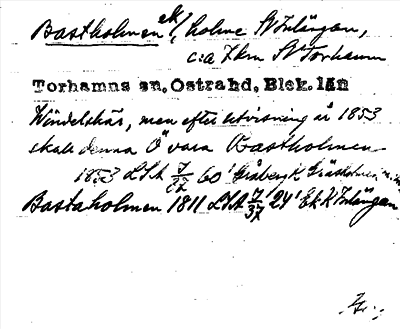 Bastholmen el. holme SV Inlängan,
c:a 7 km SV Torhamn
Torhamns sn, Östra hd, Blek. län
Windelskär, men efter utvisning år 1853
skall denna Ö vara Bastholmen
1853 LSA 7/37 60' Gråberg K Gräsholmen
Bastaholmen 1811 LSA 7/37 24' Ek K Inlängan